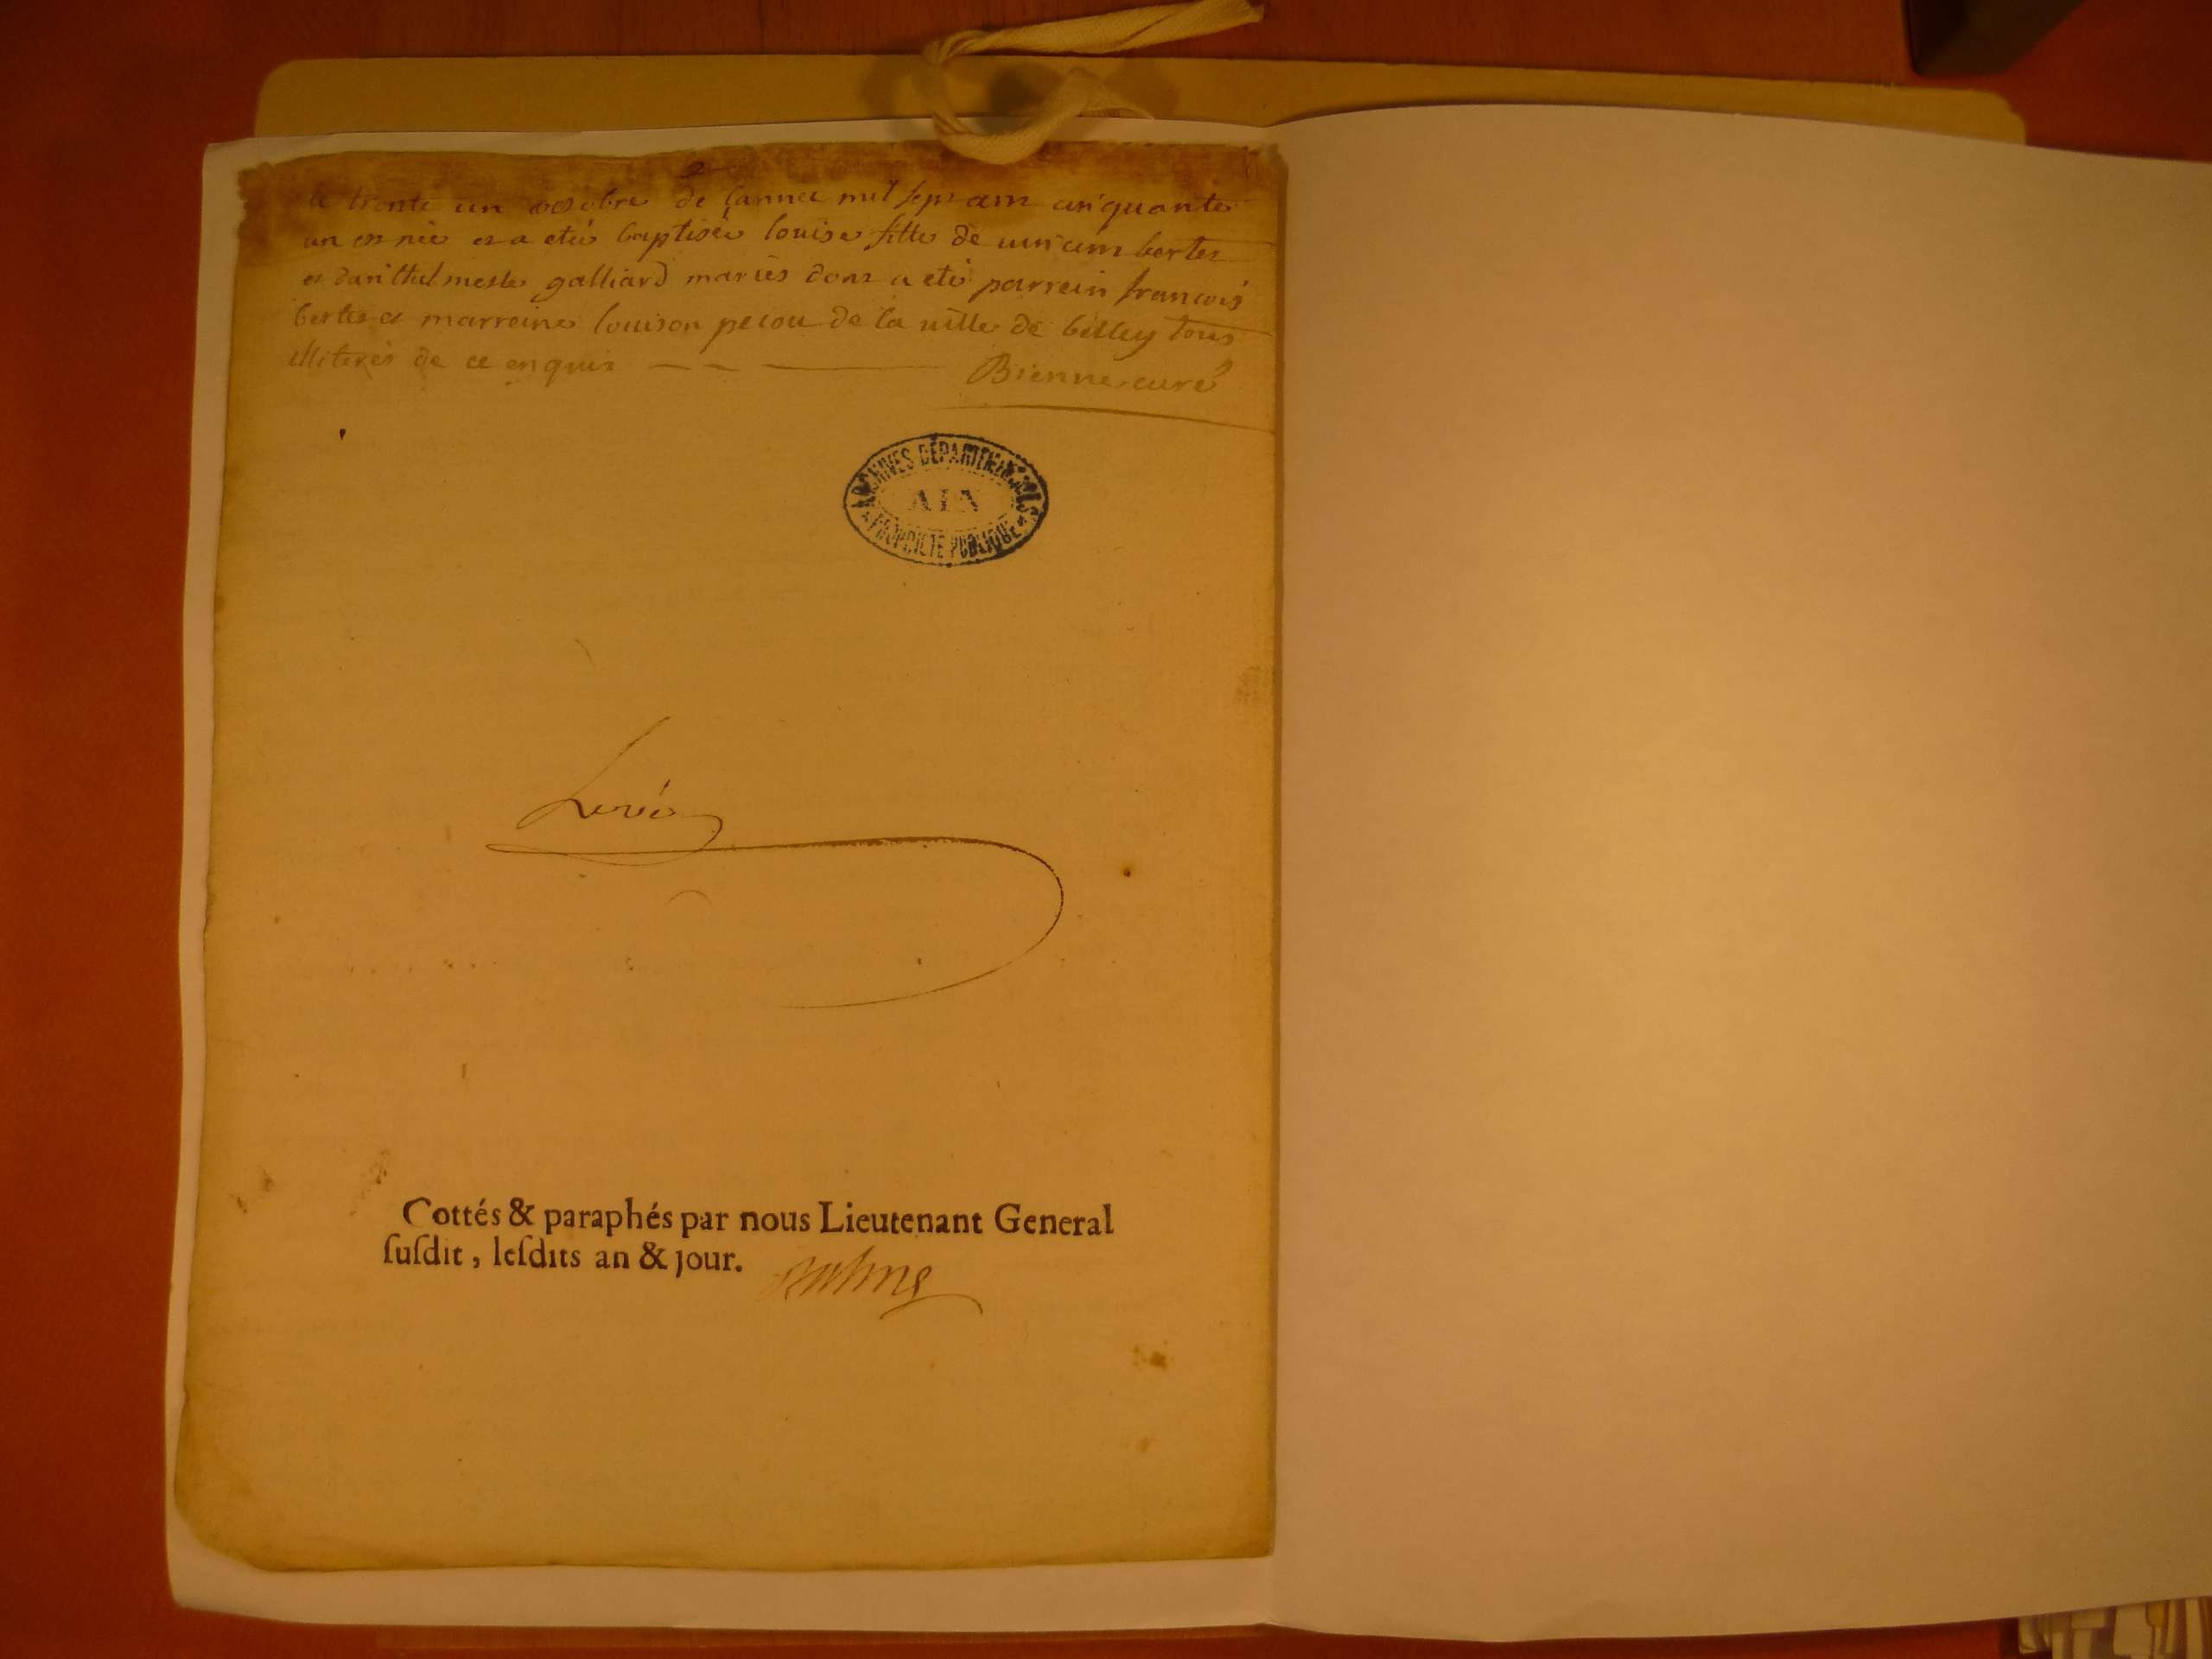 le trente un octobre de l'annee mil sept cent cinquante
un est née et a eté baptisée louise fille de vincent bertet
et d'anthelmeste galliard mariés dont a eté parrein francois
bertet et marreine louison pecou de la ville de belley tous
illiterés de ce enquis Bienne curé
ARCHIVES DÉPARTEMENTALES
AIN
PROPRIÉTÉ PUBLIQUE
Cottés & paraphés par nous Lieutenant General
ſuſdit, leſdits an & jour.